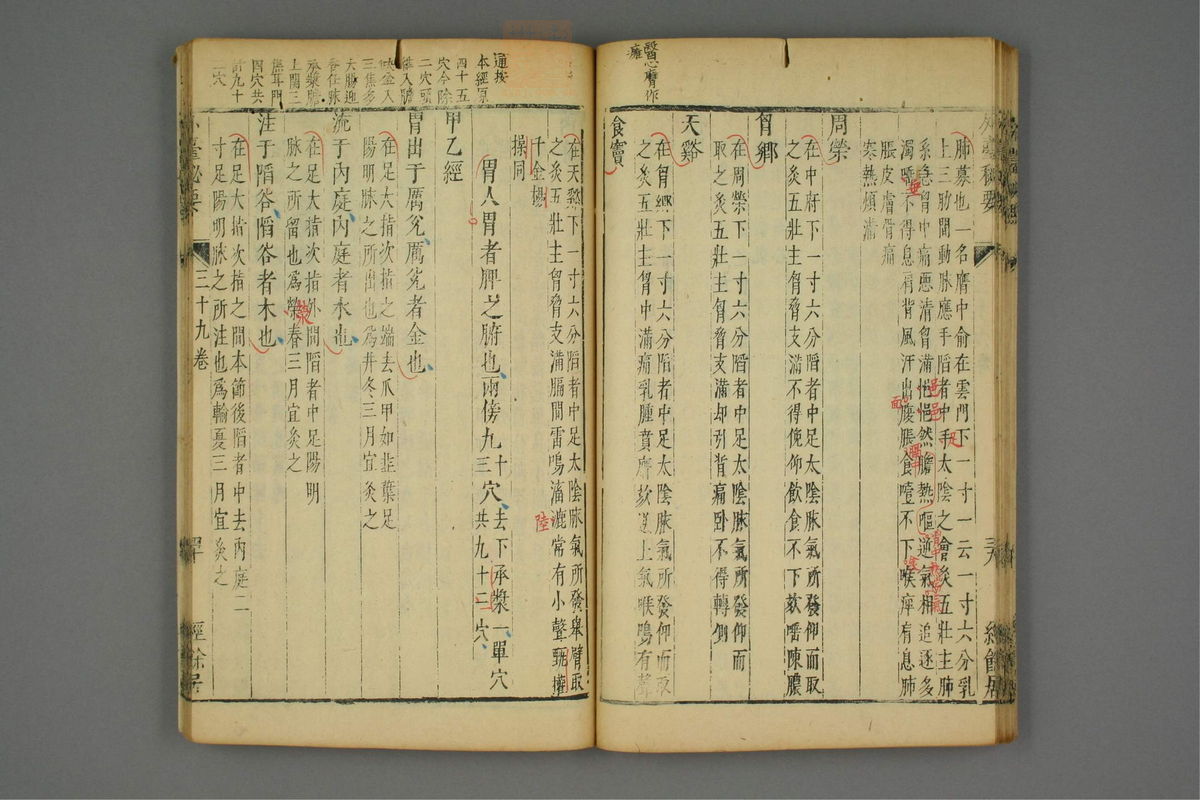 醫心膺作
癰
肺募也一名膺中俞在雲門下一寸一云一寸六分乳
上三肋間動脉應手陷者中手太陰之會灸五壯主肺
系急胷中痛惡清胷滿悒悒然膽熱嘔逆氣相追逐多
濁唾不得息肩背風汗出腹脹食噎不下喉痺肩息肺
脹皮膚骨痛
寒熱煩滿
周榮
在中府下一寸六分陷者中足太陰脉氣所發仰而取
之灸五壯主胷脅支滿不得俛仰飲食不下欬唾陳膿
胷鄉
在周榮下一寸六分陷者中足太陰脉氣所發仰而
取之灸五壯主胷脅支滿却引背痛卧不得轉側
天谿
在胷鄉下一寸六分陷者中足太陰脉氣所發仰而取
之灸五壯主胷中滿痛乳腫賁膺欬逆上氣喉鳴有聲
食竇
通按
本經原
四十五
穴今除
二穴頭
維入膽
三焦多
大腸迎
香任脉
承漿膽
上關三
焦耳門
四穴共
計九十
二穴
在天谿下一寸六分陷者中足太陰脉氣所發舉臂取
之灸五壯主胷脅支滿膈間雷鳴滀漉常有小聲甄權
千金楊
操同
胃人胃者脾之腑也兩傍九十三穴去下承漿一單穴
共九十二穴
甲乙經
胃出于厲兌厲兌者金也
在足大指次指之端去爪甲如韭葉足
陽明脉之所出也爲井冬三月宜灸之
流于内庭内庭者水也
在足大指次指外間陷者中足陽明
脉之所留也爲榮春三月宜灸之
注于陷谷陷谷者木也
在足大指次指之間本節後陷者中去内庭二
寸足陽明脉之所注也爲輸夏三月宜灸之
三十九卷